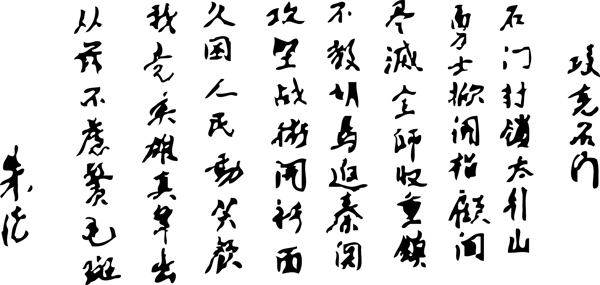 攻克石门
石门封锁太行山
勇士掀开指顾间
尽灭全师收重镇
不教胡马返秦关
攻坚战術开新面
久困人民动笑颜
我党英雄真辈出
从兹不虑鬓毛斑
朱德